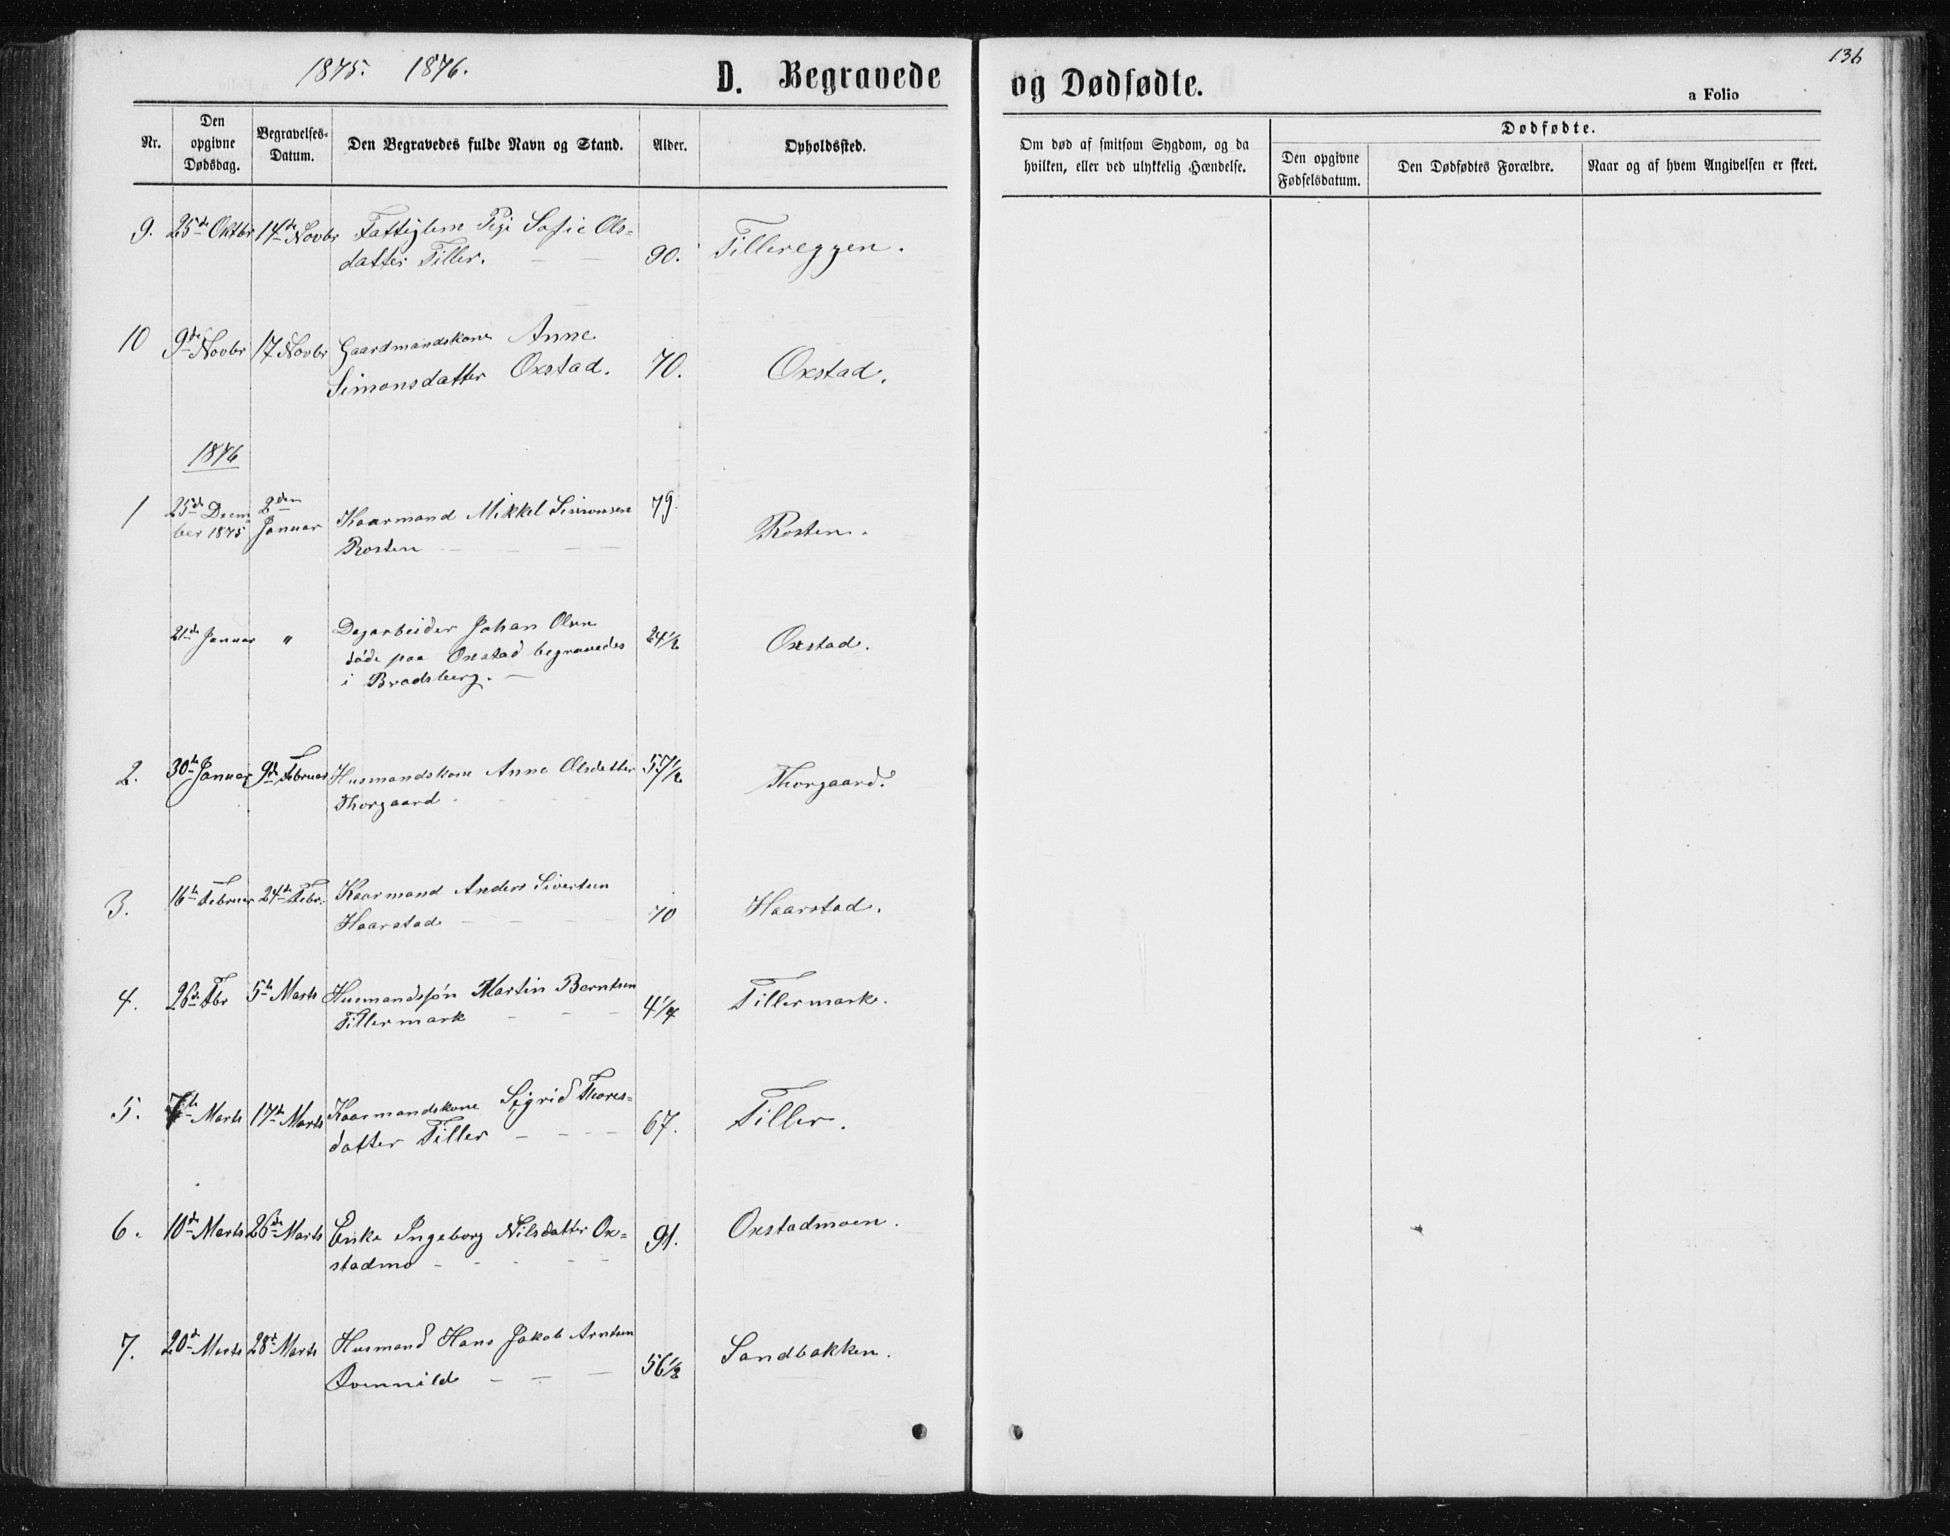 1875. 1876.
D. Begravede og Dødfødte.
136
a Folio
Nr.
Den opgivne Dødsdag.
Begravelses-Datum.
Den Begravedes fulde Navn og Stand.
Alder.
Opholdssted.
Om død af smitsom Sygdom, og da hvilken, eller ved ulykkelig Hændelse.
Dødfødte.
Den opgivne Fødselsdatum.
Den Dødfødtes Forældre.
Naar og af hvem Angivelsen er skeet.
9. 25de Oktbr 14de Novbr Fattiglem Pige Sofie Ols-
datter Tiller. — — 90. Tillereggen.
10 9de Novbr 17 Novbr Gaardmandskone Anne
Simonsdatter Oxstad. 70. Oxstad.
1876
1 25de Decem 2den Kaarmand Mikkel Simonsen 79.
ber 1875 Januar Rosten — — — Rosten.
21de Januar " Dagarbeider Johan Olsen 24½ Oxstad.
døde paa Oxstad begravedes
i Bradsberg. —
2. 30te Januar 9de Februar Husmandskone Anne Olsdatter 57½ Thorgaard.
Thorgaard
3. 16de Februar 24de Febr. Kaarmand Anders Sivertsen
Haarstad — — — 70 Haarstad.
4. 26de Fbr 5te Marts Husmandssøn Martin Berntsen
Tillermark — — — 4¼ Tillermark.
5. 7de Marts 17de Marts Kaarmandskone Sigrid Thores-
datter Tiller — — — 67. Tiller.
6. 10de Marts 26de Marts Enke Ingeborg Nilsdatter Ox-
stadmo - - - - - 91. Oxstadmoen.
7. 20de Marts 28de Marts Husmand Hans Jakob Arntsen
Qvennild — — — 56½ Sandbakken.